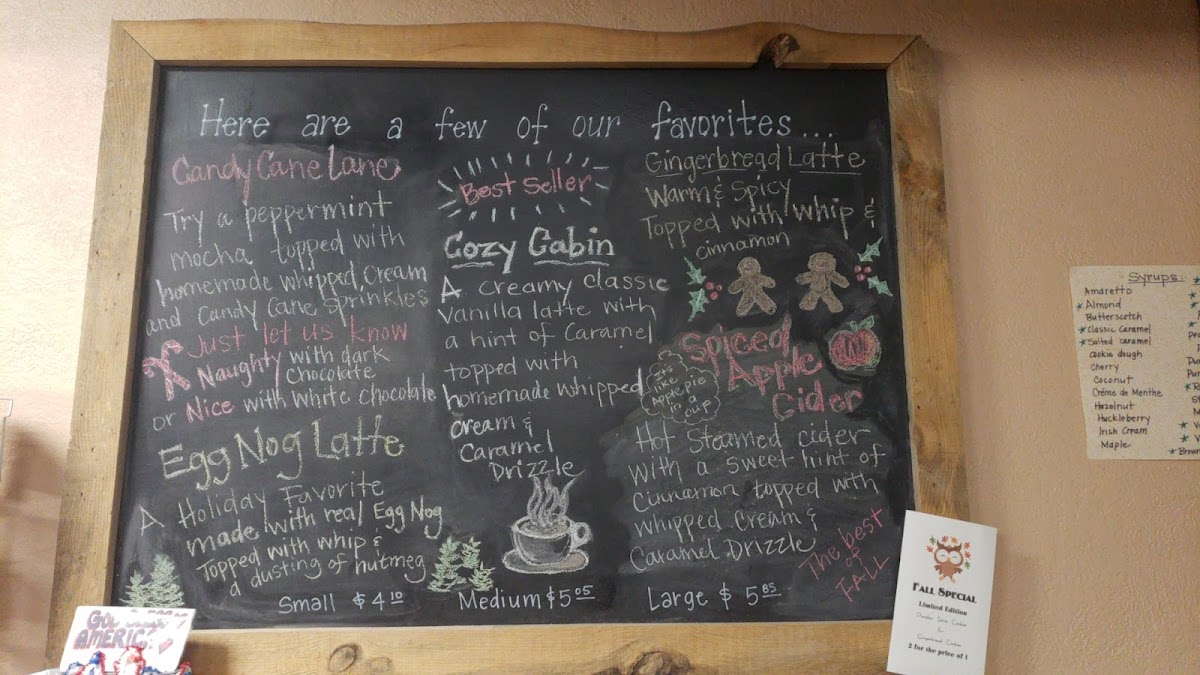 Here are a few of our favorites...
Candy Cane Lane
Try a peppermint
mocha topped with
homemade whipped cream
and Candy Cane Sprinkles
Just let us know
Naughty with dark
chocolate
or Nice with white chocolate
Egg Nog Latte
A Holiday Favorite
made with real Egg Nog
Topped with whip &
a dusting of nutmeg
Small $4.10
Best Seller
Cozy Cabin
A creamy classic
vanilla latte with
a hint of Caramel
topped with
homemade whipped
Cream &
Caramel
Drizzle
Medium $5.05
Gingerbread Latte
Warm & Spicy
Topped with whip &
cinnamon
Spiced
Apple
Cider
it's
like
Apple pie
in a
cup
Hot Steamed cider
with a sweet hint of
Cinnamon topped with
whipped Cream &
Caramel Drizzle
The best
of
FALL
Large $5.85
Syrups:
Amaretto
Almond
Butterscotch
Classic Caramel
Salted caramel
Cookie dough
Cherry
Coconut
Créme de Menthe
Hazelnut
Huckleberry
Irish Cream
Maple
Brown
AMERICA
FALL SPECIAL
Limited Edition
Cookie
&
Gingerbread Cookie
2 for the price of 1